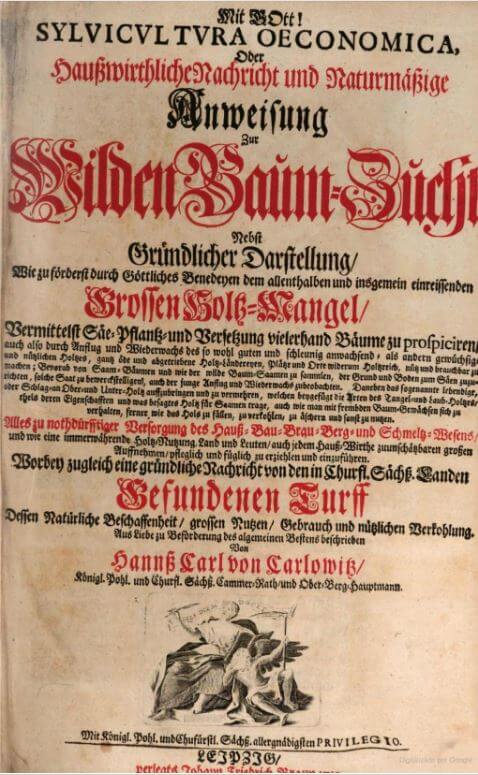 Mit GOtt!
SYLVICVLTVRA OECONOMICA,
Oder
Haußwirthliche Nachricht und Naturmäßige
Anweisung
Zur
Wilden Baum-Zucht
Nebst
Gründlicher Darstellung/
Wie zu förderst durch Göttliches Benedeyen dem allenthalben und insgemein einreissenden
Grossen Holtz-Mangel/
Vermittelst Säe-Pflantz-und Versetzung vielerhand Bäume zu prospiciren/
auch also durch Anflug und Wiederwachs des so wohl guten und schleunig anwachsend, als andern gewüchsig
und nützlichen Holtzes, gantz öde und abgetriebene Holtz-Ländereyen, Plätze und Orte widerum Holtzreich, nütz und brauchbar zu
machen; Bevorab von Saam-Bäumen und wie der wilde Baum-Saamen zu sammlen, der Grund und Boden zum Säen zuzu-
richten, solche Saat zu bewerckstelligen, auch der junge Anflug und Wiederwachs zu beobachten. Daneben das sogenannte lebendige,
oder Schlag-an Ober-und Unter-Holtz aufzubringen und zu vermehren, welchen beygefügt die Arten des Tangel-und Laub-Holtzes,
theils deren Eigenschafften und was besagtes Holtz für Saamen trage, auch wie man mit frembden Baum-Gewächsen sich zu
verhalten, ferner wie das Holtz zu fällen, zu verkohlen, zu äschern und sonst zu nutzen.
Alles zu nothdürfftiger Versorgung des Hauß-Bau-Brau-Berg-und Schmeltz-Wesens/
und wie eine immerwährende Holtz-Nutzung, Land und Leuten/ auch jedem Hauß-Wirthe zu unschätzbaren großen
Auffnehmen/ pfleglich und füglich zu erziehlen und einzuführen.
Worbey zugleich eine gründliche Nachricht von den in Churfl. Sächß. Landen
Gefundenen Turff
Dessen Natürliche Beschaffenheit/ grossen Nutzen/ Gebrauch und nützlichen Verkohlung.
Aus Liebe zu Beförderung des algemeinen Bestens beschrieben
Von
Hannß Carl von Carlowitz/
Königl. Pohl. und Churfl. Sächß. Cammer-Rath/ und Ober-Berg-Hauptmann.
Mit Königl. Pohl. und Chufürstl. Sächß. allergnädigsten PRIVILEGIO.
LEIPZIG/
verlegts Johann Friedrich Braun
Digitalisiert von Google